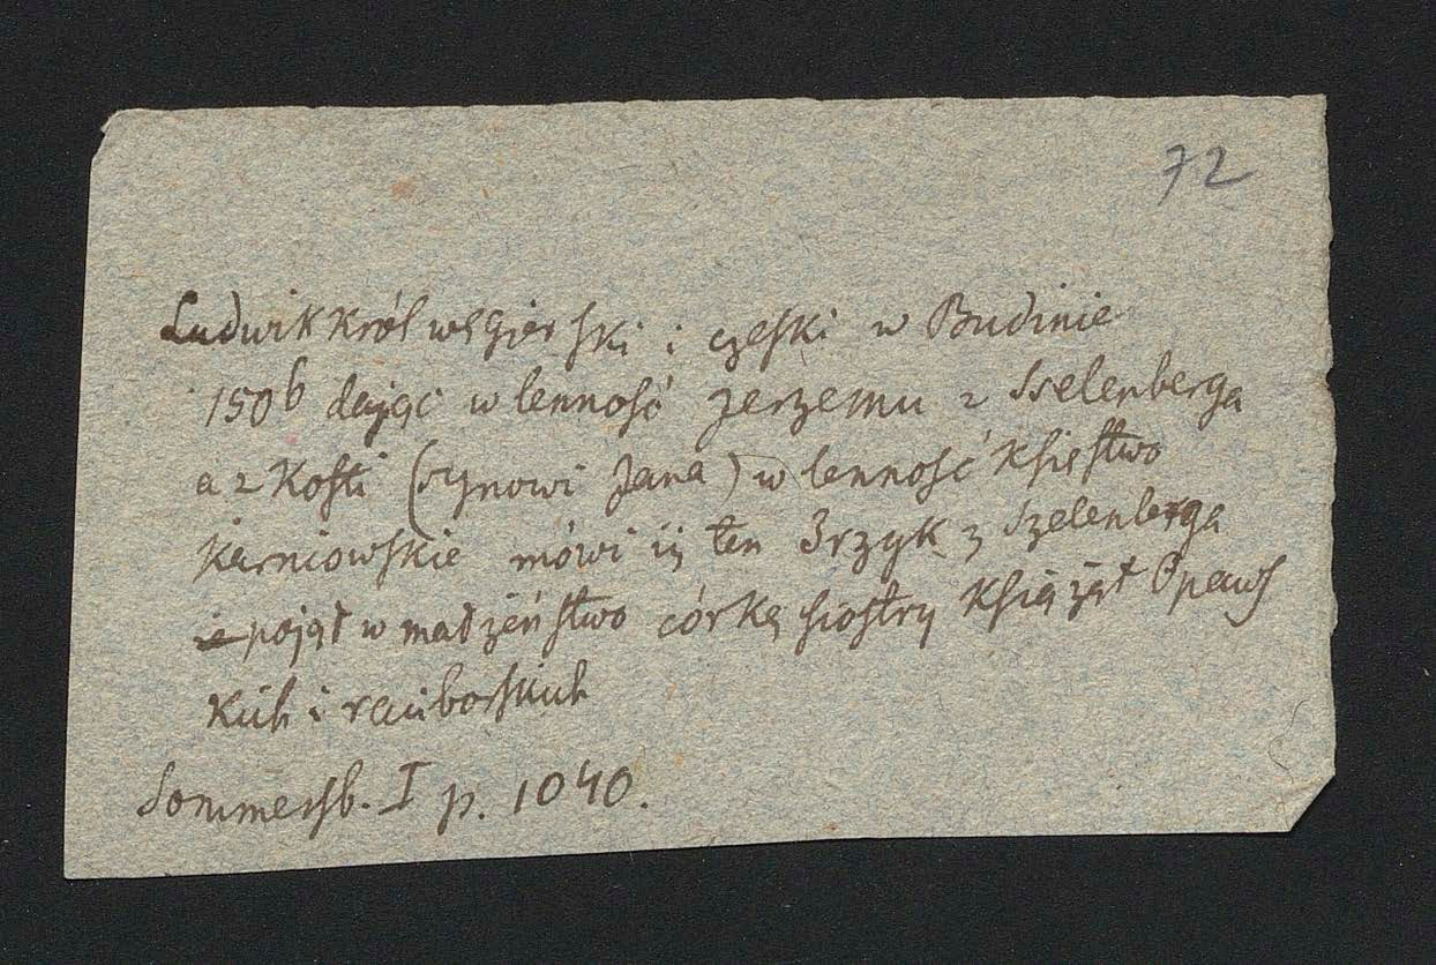 72
Ludwik król węgierski i czeski w Budinie
1506 dając w lenność Jerzemu z Sselenberga
a z Kosti (synowi Jana) w lenność księstwo
karniowskie mówi iż ten Jrzyk z Szelenberga
pojął w małżeństwo córkę siostry książąt Opaws
kich i raciborskich
Sommersb. I p. 1040.